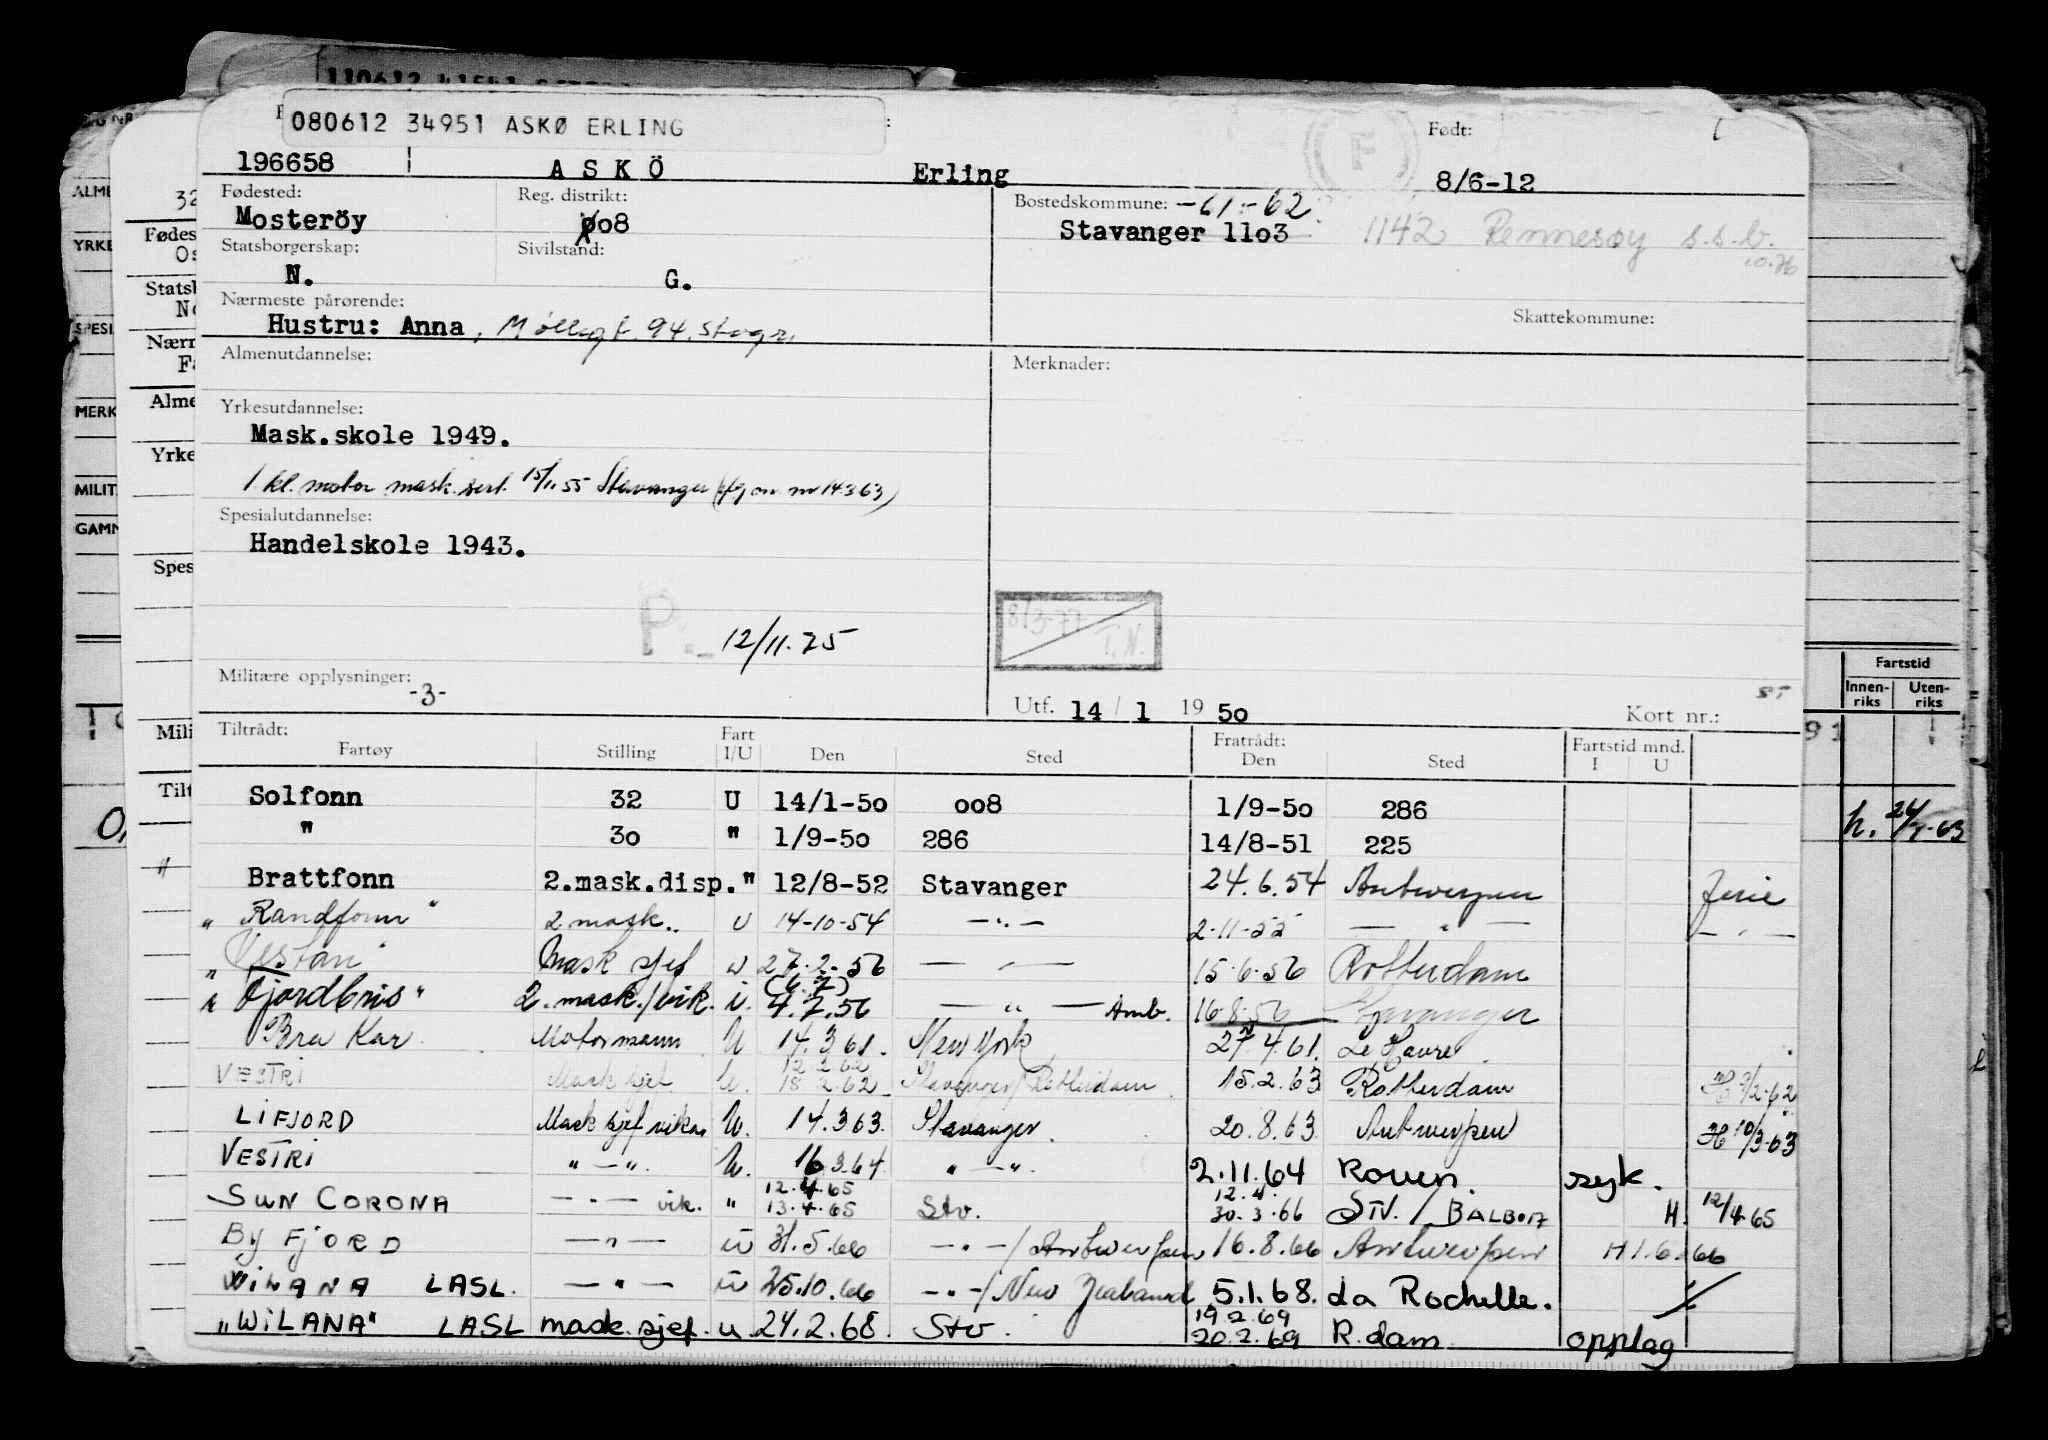 080612 34951 ASKØ ERLING
Født:
196658 ASKÖ Erling 8/6-12
Fødested: Reg. distrikt: Bostedskommune: -61-62.
Mosteröy oo8 Stavanger 11o3 1142 Rennesøy s.s.b.
10.76
Statsborgerskap: Sivilstand:
N. G.
Nærmeste pårørende: Skattekommune:
Hustru: Anna, Møllegt. 94, Stvgr.
Almenutdannelse: Merknader:
Yrkesutdannelse:
Mask.skole 1949.
1 kl. motor mask. sert. 15/11 55 Stavanger
Spesialutdannelse:
Handelskole 1943.
P.- 12/11.75
8/3-77 T.N.
Militære opplysninger: -3-
Utf. 14 / 1 19 5o Kort nr.:
Tiltrådt: Fart Fratrådt: Fartstid mnd.
Fartøy Stilling I/U Den Sted Den Sted I U
Solfonn 32 U 14/1-5o oo8 1/9-5o 286
" 3o " 1/9-5o 286 14/8-51 225
Brattfonn 2.mask.disp." 12/8-52 Stavanger 24.6.54 Antwerpen Ferie
" Randfonn " 2 mask.. U 14-10-54 — " — 2-11-55 — " — — " —
" Vestan " Mask sjef u 27.2-56 — " — 15.6.56 Rotterdam
(6.7)
" Fjordbris " 2. mask./vik. i. 4.7.56 — " — Amb. 16.8.56 Stavanger
Bra Kar Motormann U 14.3 61. New York 27.4.61. Le Havre.
12 2 62
VESTRI Mask sjef U. 18 2.62 Stavanger/Rotterdam 15.2.63 Rotterdam
LIFJORD Mask sjef vikar U. 14.3 63. Stavanger. 20.8.63 Antwerpen H 10/3-63
VESTRI " — ". U. 16.3.64. " — ". 2.11.64 Rouen. syk.
12.4.65 12.4.
SUN CORONA — " — vik. " 13.4.65 Stv. 30.3.66 STV. / BALBOA H. 12/4 65
BY FJORD — " — u 31.5.66 — " —/ Antwerpen 16.8.66 Antwerpen H 1.6.66
WILANA LASL. — " — u 25.10.66 — " —/ New Zealand 5.1.68. La Rochelle.
19 2.69
"WILANA" LASL mask.sjef. u. 24.2.68. Stv. 20.2.69 R.dam. opplag
Fartstid
Innenriks Utenriks
h. 24/